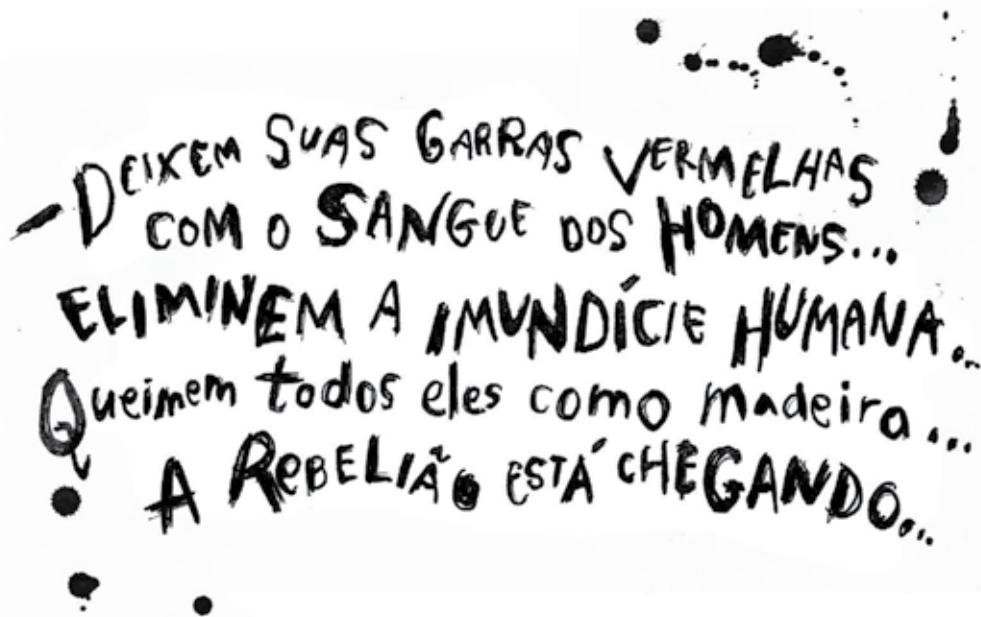 - DEIXEM SUAS GARRAS VERMELHAS
COM O SANGUE DOS HOMENS...
ELIMINEM A IMUNDÍCIE HUMANA...
Queimem todos eles como madeira...
A REBELIÃO ESTÁ CHEGANDO...